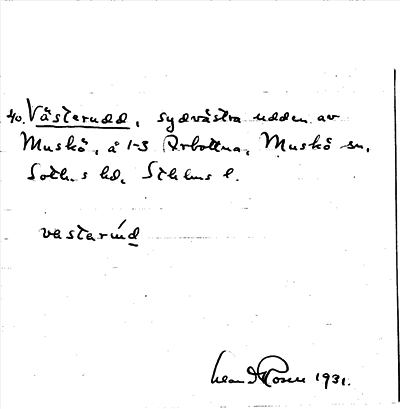 40. Västerudd, sydvästra udden av
Muskö, å 1-3 Arbottna, Muskö sn,
Sotlms hd, Sthlms l.
vastarúd
1931.